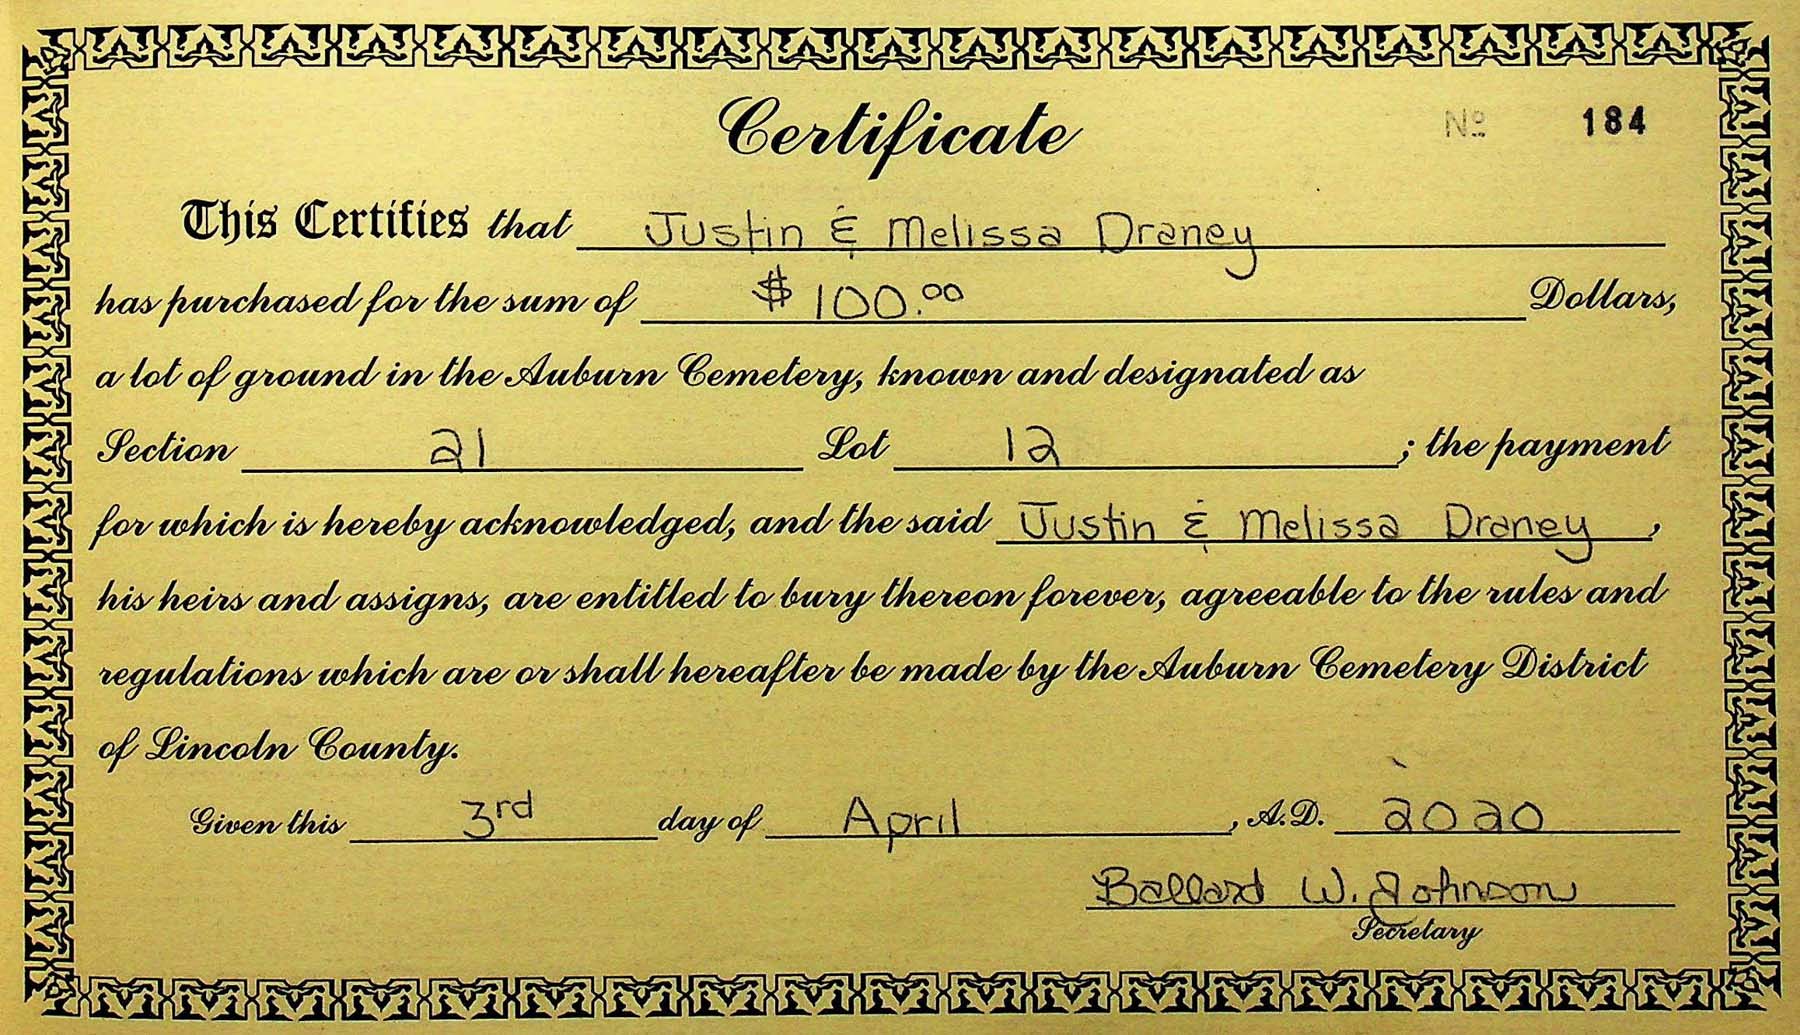 Certificate
Nº 184
This Certifies that Justin & Melissa Draney
has purchased for the sum of $ 100.00 Dollars,
a lot of ground in the Auburn Cemetery, known and designated as
Section 21 Lot 12 ; the payment
for which is hereby acknowledged, and the said Justin & Melissa Draney ,
his heirs and assigns, are entitled to bury thereon forever, agreeable to the rules and
regulations which are or shall hereafter be made by the Auburn Cemetery District
of Lincoln County.
Given this 3rd day of April , A.D. 2020
Ballard W. Johnson
Secretary